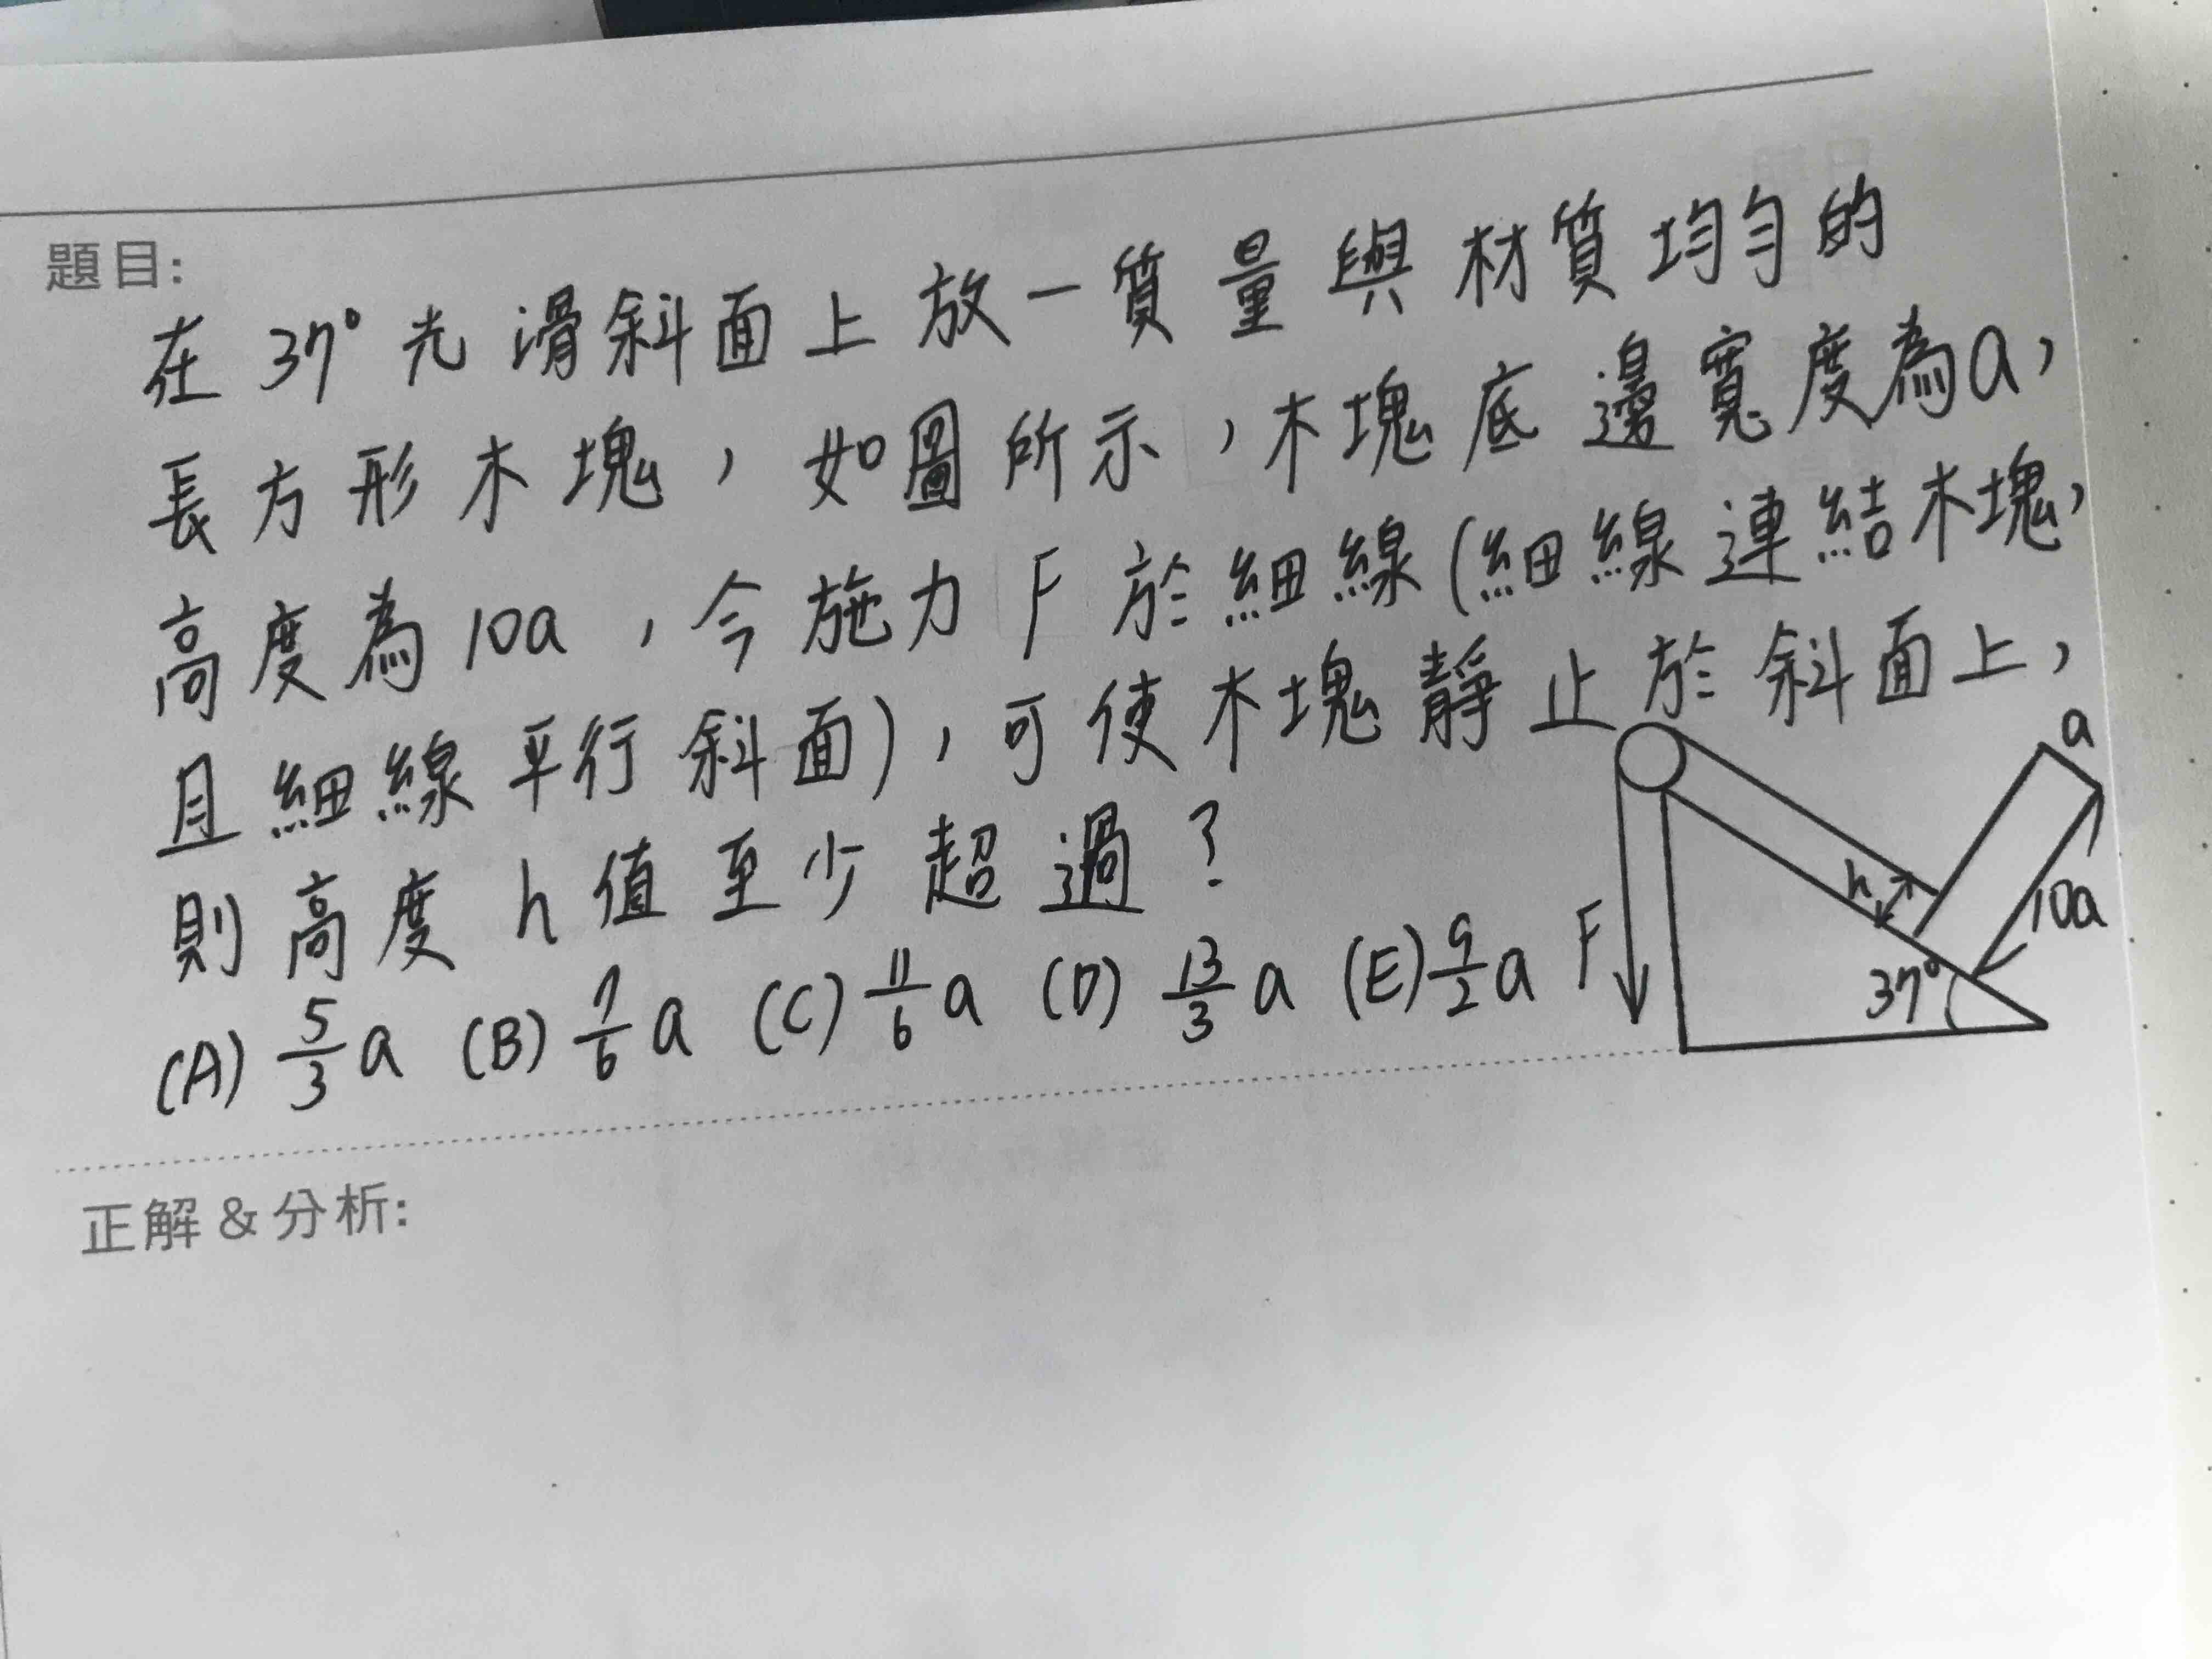 題目:
在 37° 光滑斜面上放一質量與材質均勻的
長方形木塊，如圖所示，木塊底邊寬度為a，
高度為10a，今施力 F 於細線(細線連結木塊，
且細線平行斜面)，可使木塊靜止於斜面上，
則高度 h 值至少超過？
(A) 5/3 a (B) 7/6 a (C) 11/6 a (D) 13/3 a (E) 9/2 a
a
h
10a
F
37°
正解&分析: